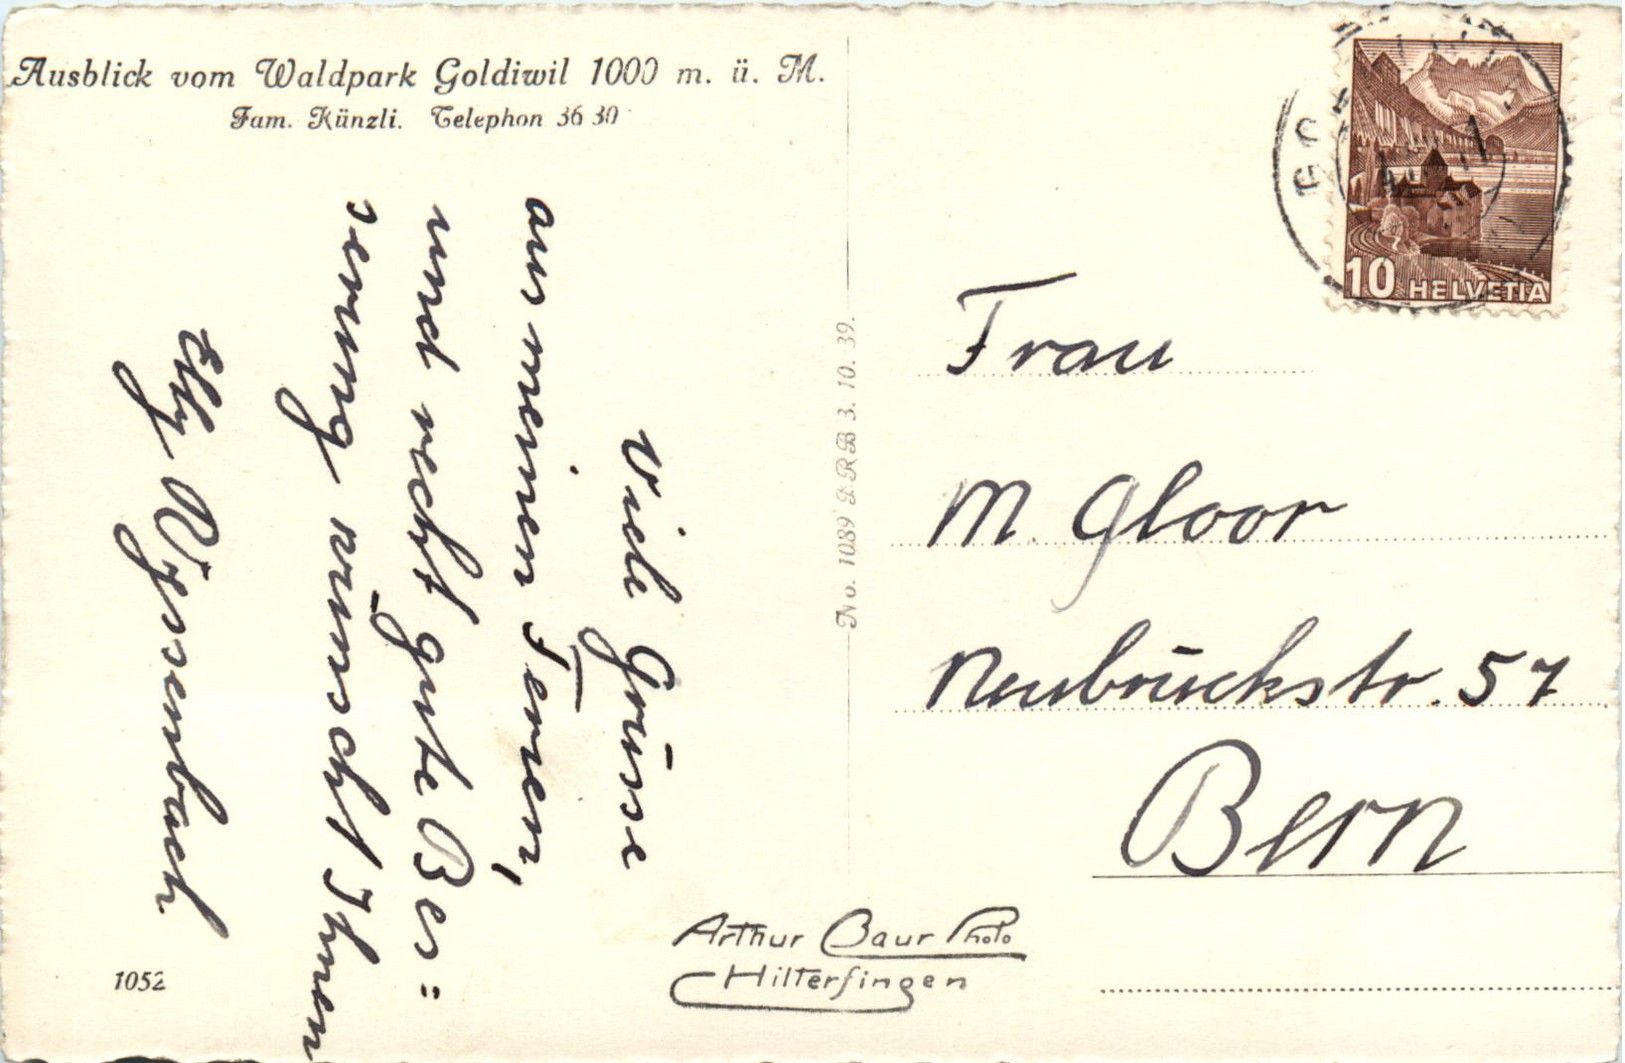 Ausblick vom Waldpark Goldiwil 1000 m. ü. M.
Fam. Künzli. Telephon 36 30
Viele Grüsse
aus meinen Ferien,
und recht gute Bes=
serung wünscht Ihnen
Elly Wyssenbach.
No. 1089 ARB 3. 10. 39.
10 HELVETIA
Frau
M. Gloor
Neubrückstr. 57
Bern
Arthur Baur Photo
Hilterfingen
1052